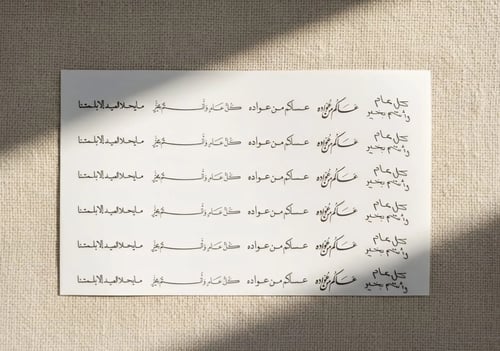 كل عام وأنتم بخير عساكم من عواده عساكم من عواده كل عام وأنتم بخير مايحلا العيد الا بلمتنا
كل عام وأنتم بخير عساكم من عواده عساكم من عواده كل عام وأنتم بخير مايحلا العيد الا بلمتنا
كل عام وأنتم بخير عساكم من عواده عساكم من عواده كل عام وأنتم بخير مايحلا العيد الا بلمتنا
كل عام وأنتم بخير عساكم من عواده عساكم من عواده كل عام وأنتم بخير مايحلا العيد الا بلمتنا
كل عام وأنتم بخير عساكم من عواده عساكم من عواده كل عام وأنتم بخير مايحلا العيد الا بلمتنا
كل عام وأنتم بخير عساكم من عواده عساكم من عواده كل عام وأنتم بخير مايحلا العيد الا بلمتنا